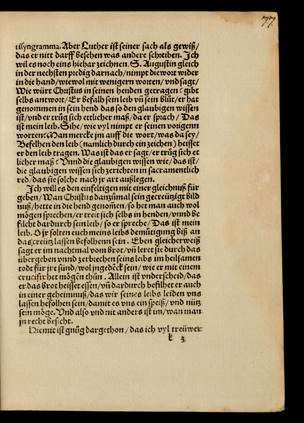 777
syllyngramma. Aber Luther ist seiner sach als gewiß/
das er nitt darff besehen was andere schreiben. Ich
wil es noch eins hiehar zeichnen. S. Augustin gleich
in der nechsten predig darnach/ nimpt die wort wider
in die hand/ wiewol mit wenigern worten/ vnd sagt/
Wie würt Christus in seinen henden getragen: gibt
selbs antwort/ Er befalh sein leib vñ sein blůt/ er hat
genommen in sein hend das so den glaubigen wissen
ist/ vnd er trůg sich ettlicher maß/ da er sprach/ Das
ist mein leib. Sihe/ wie vyl nimpt er seinen vorigenn
worten: Man merck im auff die wort/ was da sey/
Befelhen den leib (namlich durch ein zeichen) heisset
er den leib tragen. Was ist das er sagt/ er trůg sich et
licher maß: Vnnd die glaubigen wissen wie/ das ist/
die glaubigen wissen sich zerichten in sacramentlich
red/ das sie solche nach jr art außlegen.
Ich will es den einfeltigen mit einer gleichnuß für
geben/ Wan Christus danzůmal sein gecreützigt bild
nuß/ hette in die hend genomen/ so het man auch wol
mögen sprechen/ er treit sich selbs in henden/ vnnd be
filcht dardurch sein leib/ so er spreche/ Das ist mein
leib. Ir solten euch meins leibs demütigung biß an
das creütz lassen befolhenn sein. Ebon gleicherweiß
sagt er im nachtmal vom brot/ vñ leret sie durch das
übergeben vnnd zerbrechen seins leibs im heilsamen
todt für jre sünd/ wol ingedenck sein/ wie er mit einem
crucifix het mögen thůn. Allein ist vnderscheid/ das
er das brot heisset essen/ vñ dardurch befilher er auch
in einer geheimnuß/ das wir seines leibs leiden vns
lassen befolhen sein/ damit es vns ein speiß/ vnd nütz
sein möge. Vnd also vnd nit anders ist im/ wan man
jn recht besicht.
Hiemit ist gnůg dargethon/ das ich vyl treüwer
k 3